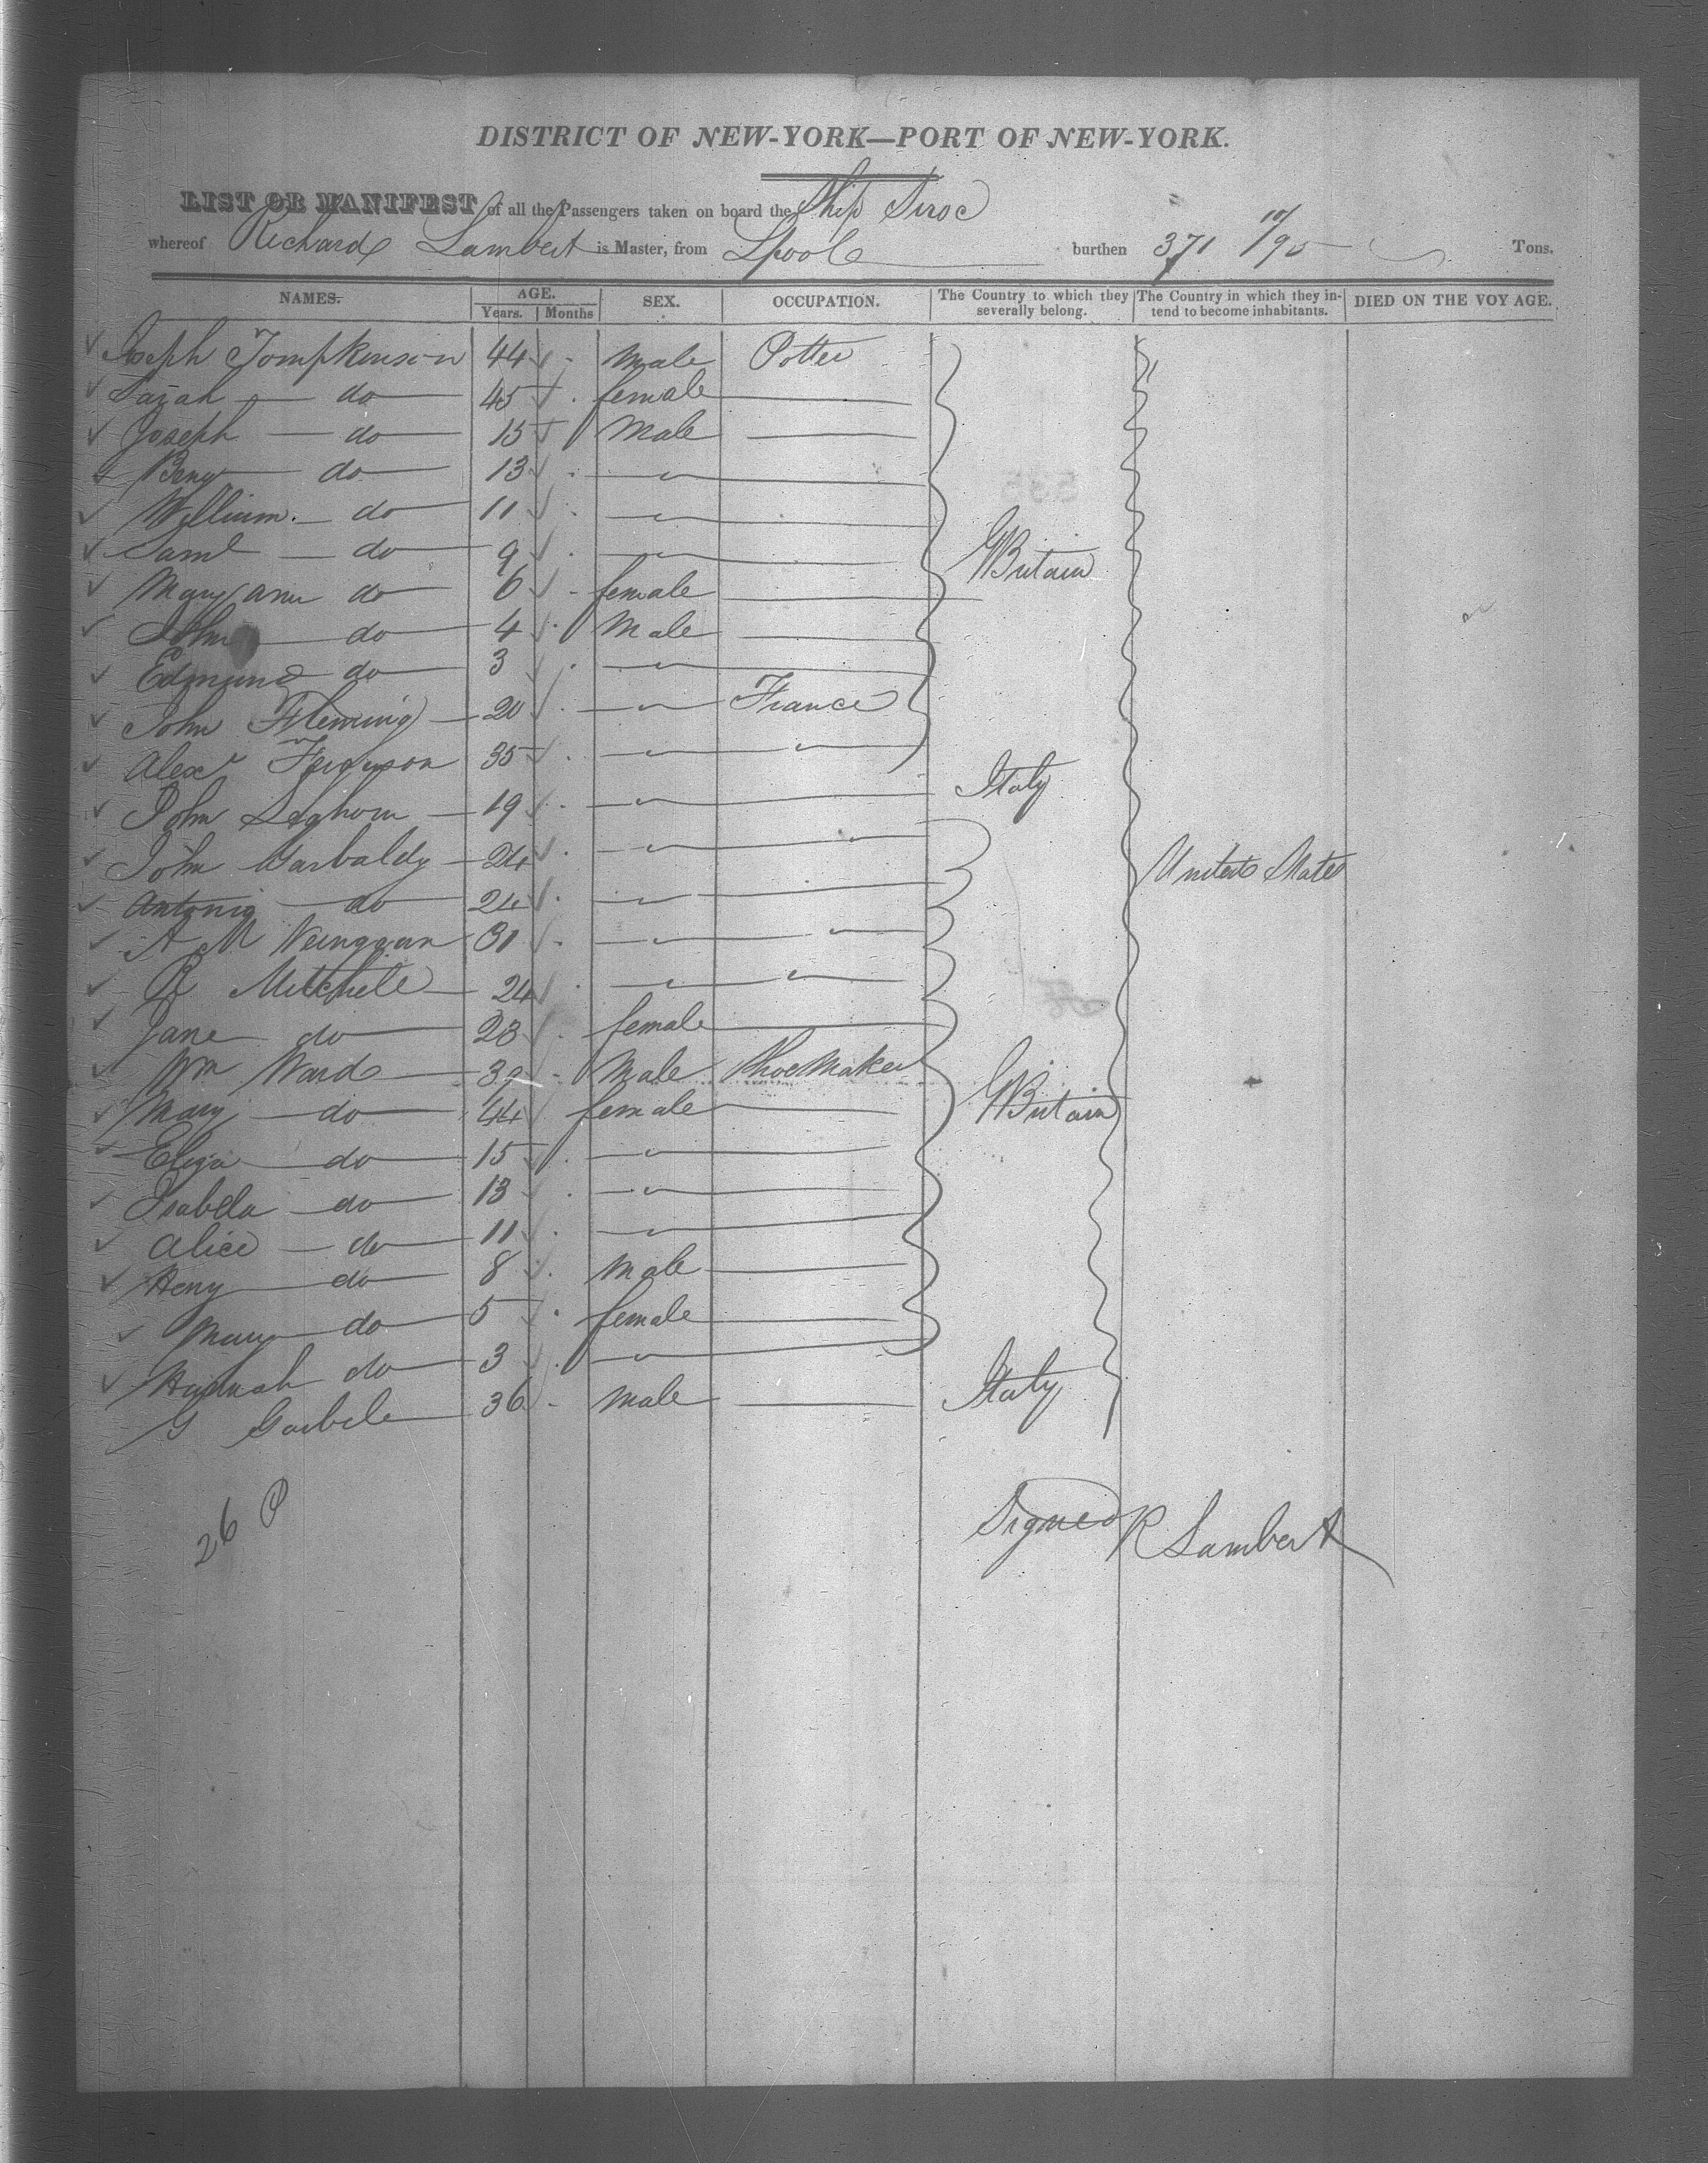 DISTRICT OF NEW-YORK—PORT OF NEW-YORK.
LIST OR MANIFEST of all the Passengers taken on board the Ship Siroc
whereof Richard Lambert is Master, from Lpool burthen 371 10/95 Tons.
NAMES. AGE. Years. Months SEX. OCCUPATION. The Country to which they severally belong. The Country in which they intend to become inhabitants. DIED ON THE VOYAGE.
Joseph Tompkinson 44 Male Potter
Sarah do 45 female
Joseph do 15 Male
Benj do 13 "
William do 11 "
Saml do 9 "
GBritain
Mary Ann do 6 female
John do 4 Male
Edmund do 3 "
John Fleming 20 " France
Alexr Ferguson 35 " "
Italy
John Leghorn 19 "
John Garbaldy 24 " "
United States
Antonio do 24 "
A M 31 " "
R Mitchele 24 " "
Jane do 23 female
Wm Ward 39 Male Shoe Maker
Mary do 44 female
GBritain
Eliza do 15 "
Isabela do 13 "
Alice do 11 "
Heny do 8 Male
Mary do 5 female
Hannah do 3 "
G Garbele 36 male Italy
26 P
Signed R Lambert